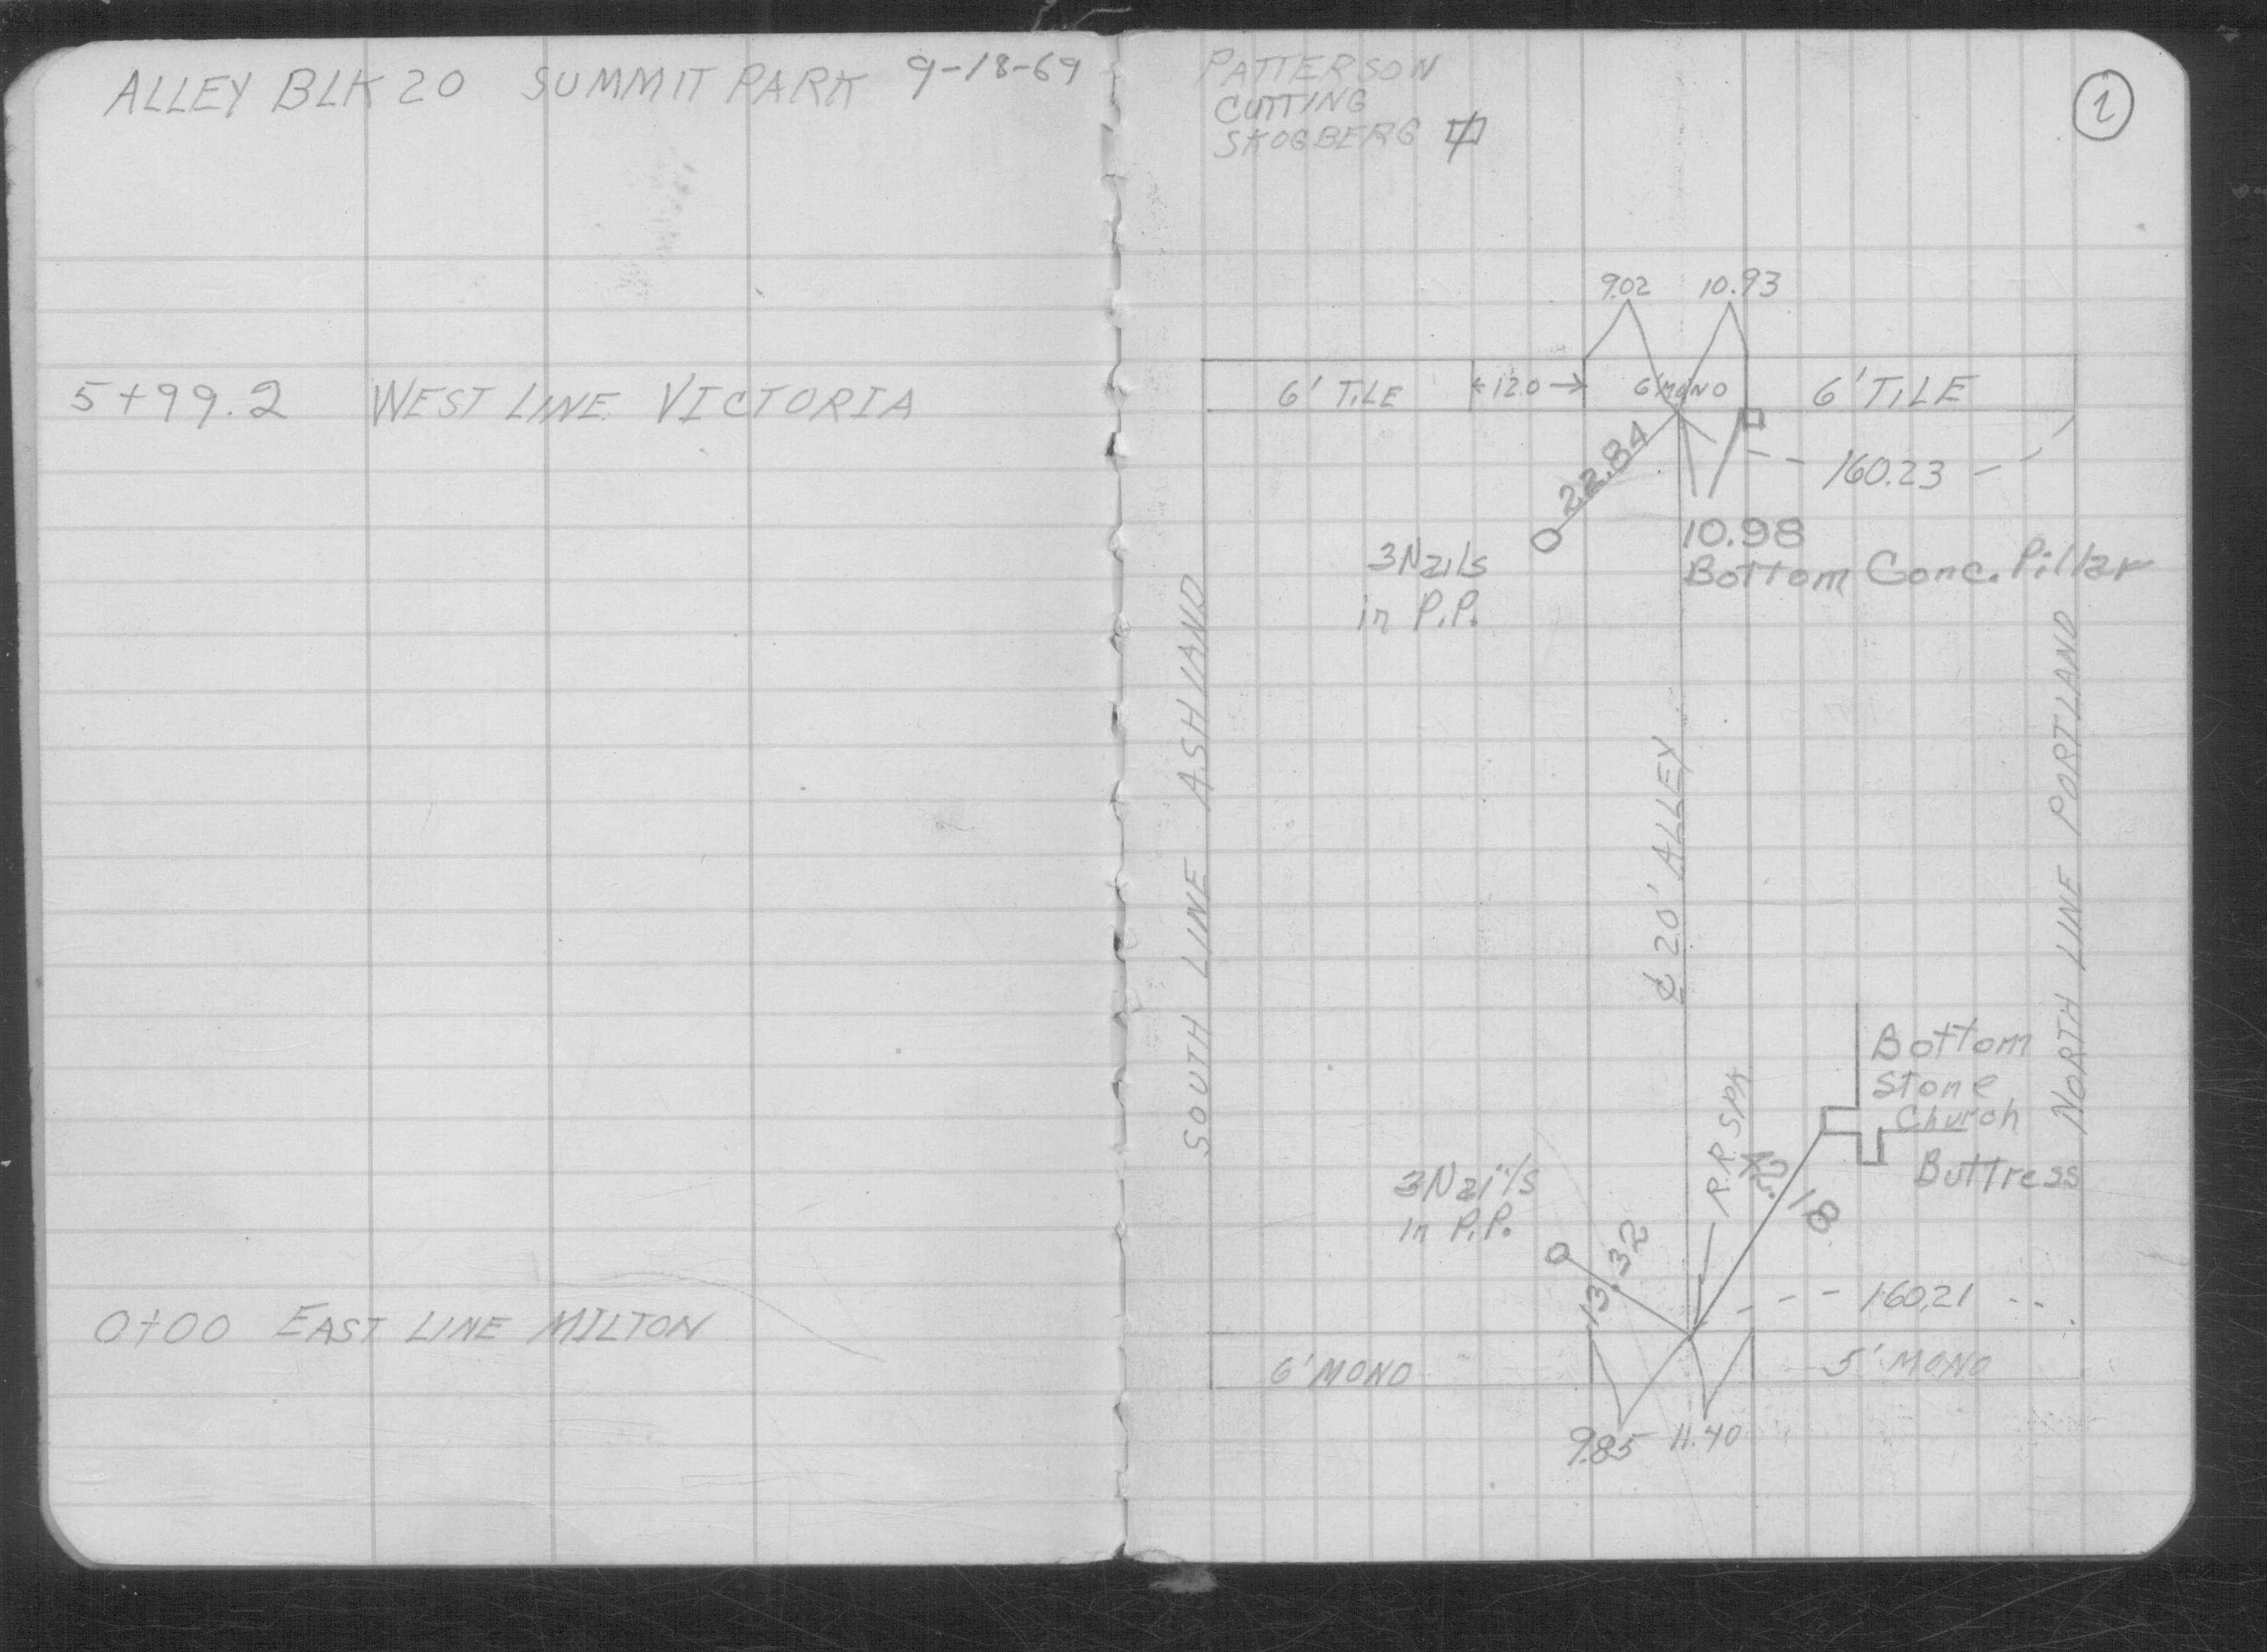 ALLEY BLK 20 SUMMIT PARK 9-18-69
5+99.2 WEST LINE VICTORIA
0+00 EAST LINE MILTON
PATTERSON
CUTTING
SKOGBERG
1
9.02 10.93
6' TILE 12.0 6' MONO 6' TILE
160.23
22.84
10.98
Bottom Conc. Pillar
3 Nails
in P.P.
SOUTH LINE ASHLAND
℄ 20' ALLEY
NORTH LINE PORTLAND
Bottom
Stone
Church
Buttress
R.R. SPK
42.18
3 Nails
in P.P.
13.32
160.21
6' MONO 5' MONO
9.85 11.40